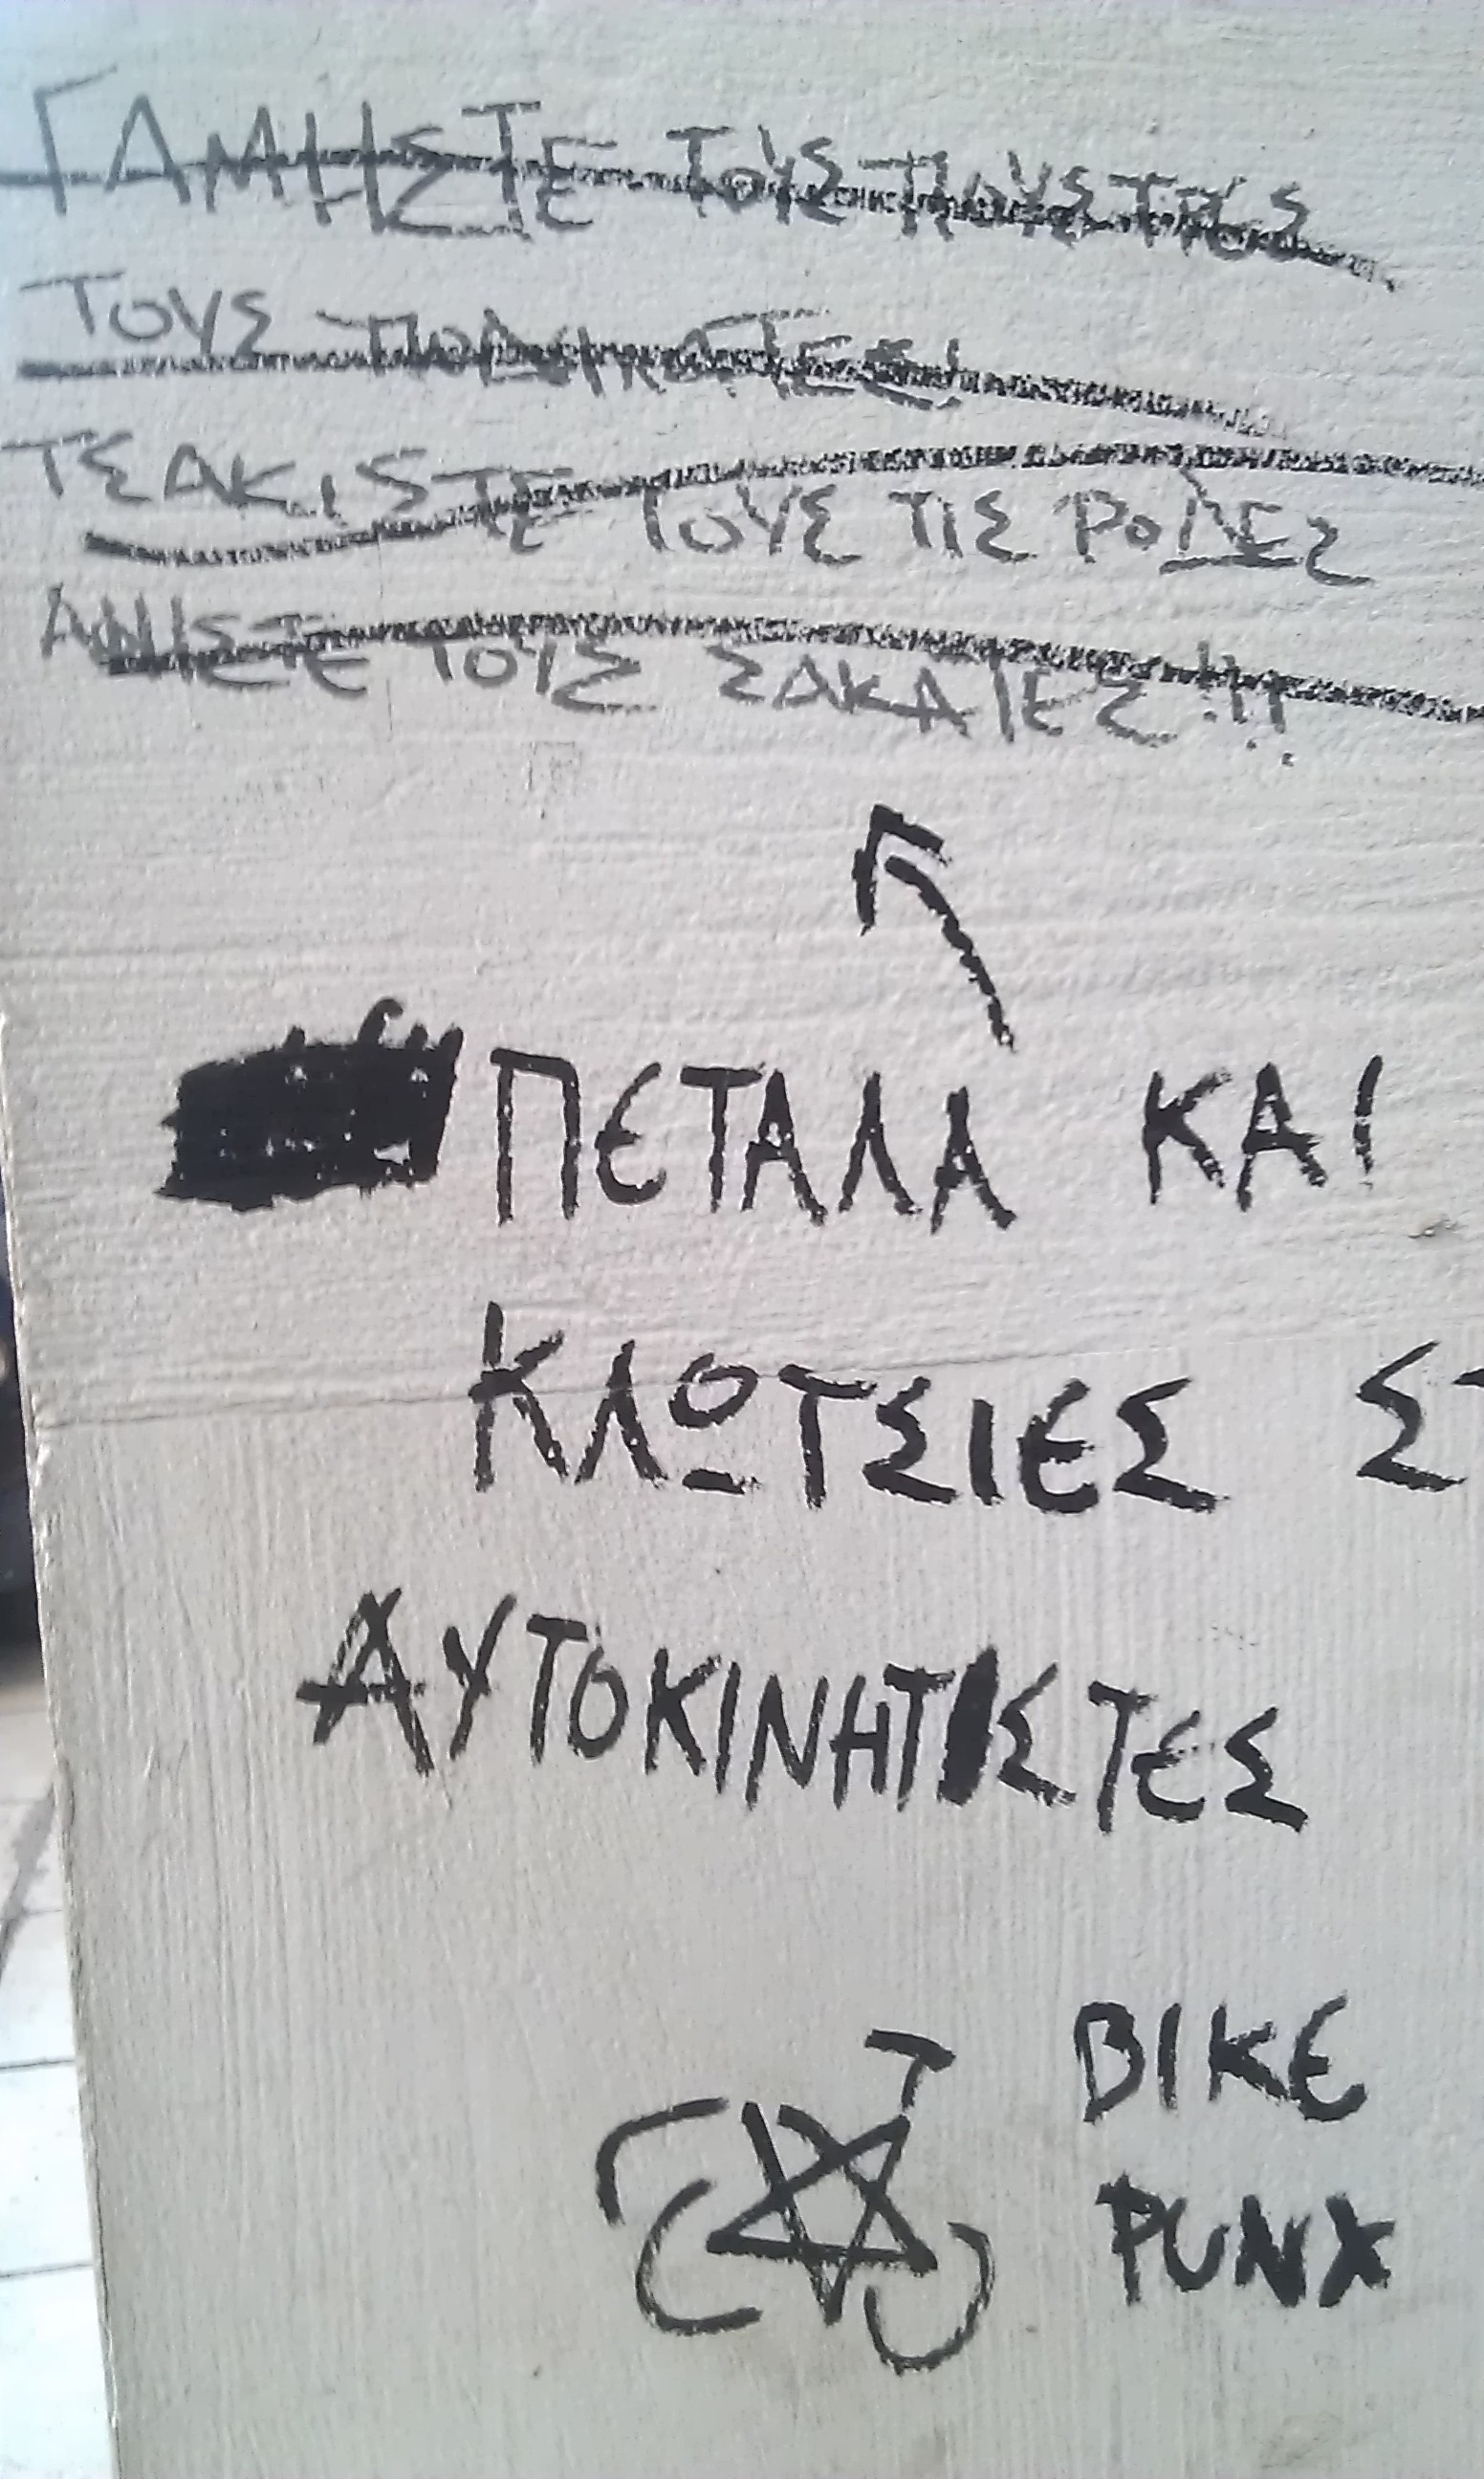 ΓΑΜΗΣΤΕ ΤΟΥΣ ΠΟΥΣΤΗΔΣ
ΤΟΥΣ ΠΟΔΗΛΑΤΕΣ!
ΤΣΑΚΙΣΤΕ ΤΟΥΣ ΤΙΣ ΡΟΔΕΣ
ΑΦΗΣΤΕ ΤΟΥΣ ΣΑΚΑΤΕΣ!!!
ΠΕΤΑΛΑ ΚΑΙ
ΚΛΩΤΣΙΕΣ ΣΤ
ΑΥΤΟΚΙΝΗΤΙΣΤΕΣ
BIKE
PUNX